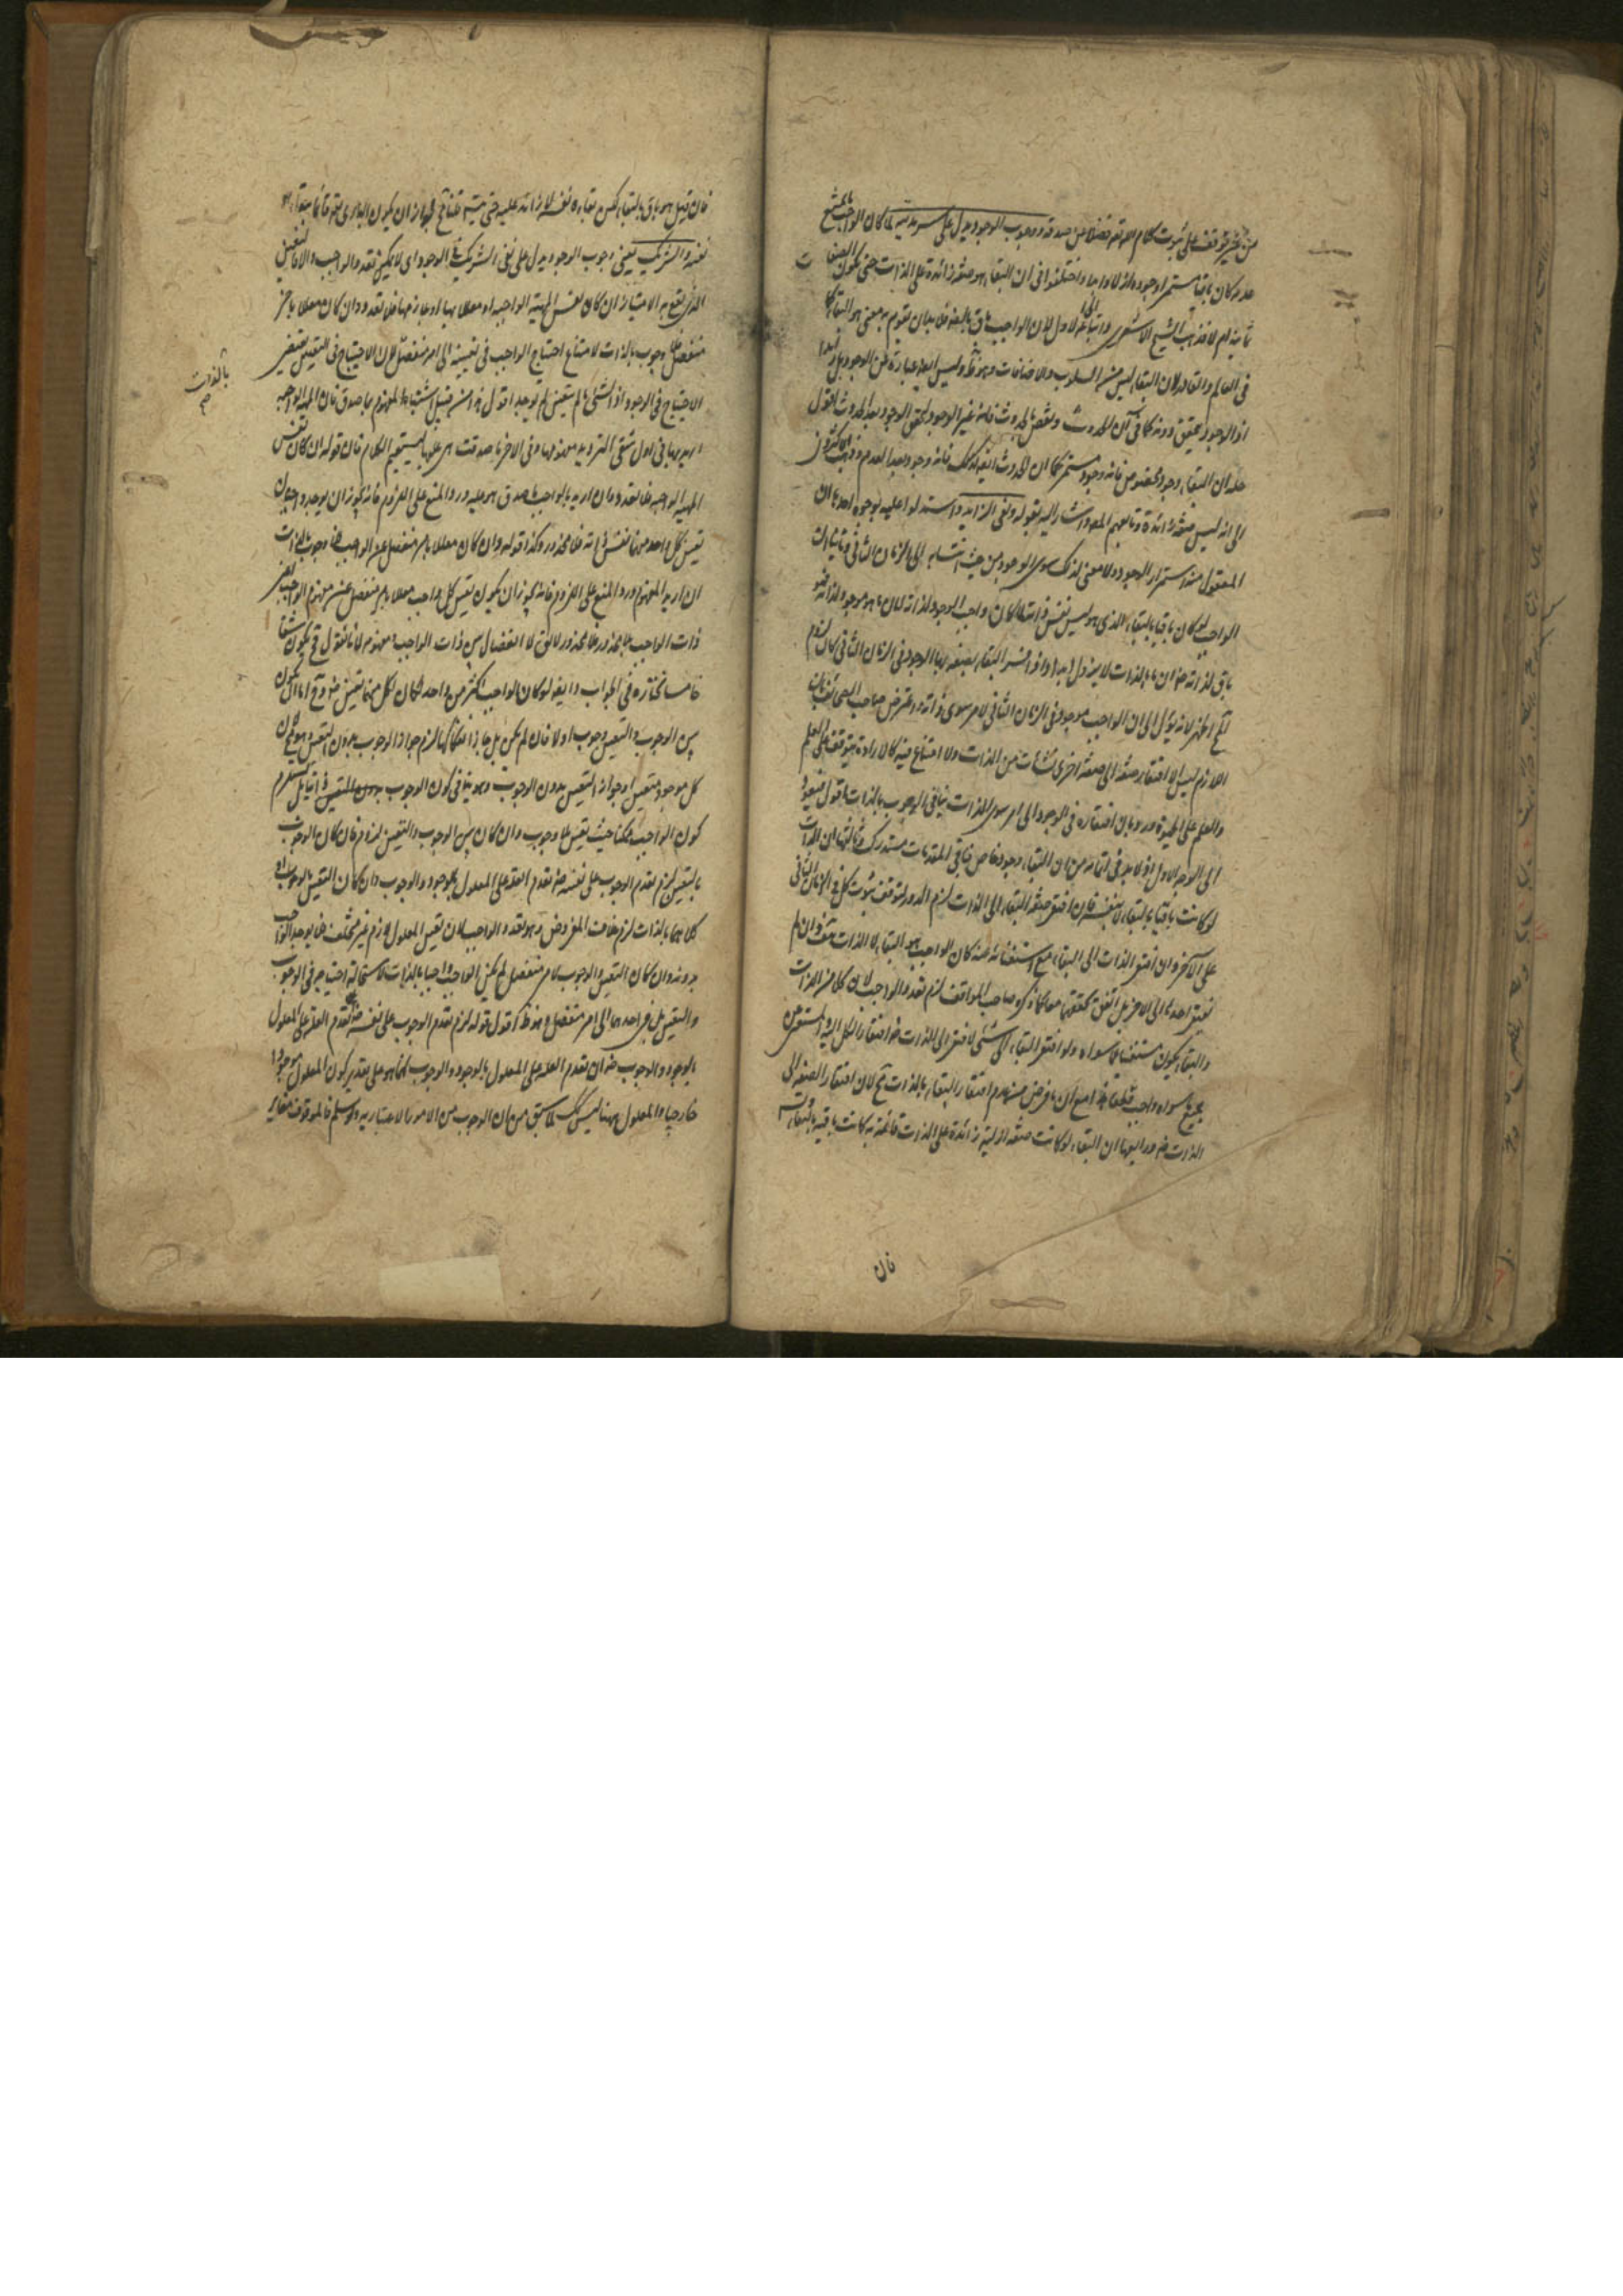 من غير توقف على ثبوت كلام الله تعالى فضلا عن صدقه ووجوب الوجود يدل على سرمديته لما كان الواجب ما يمتنع
عدمه كان باقيا مستمرا وجوده ازلا وابدا واختلفوا فى ان البقاء هو صفة زائدة على الذات حتى يكون الصفات
ثمانية ام لا فذهب الشيخ الاشعرى واتباعه الى الاول لان الواجب باق بالبقاء فلا بد ان يقوم به معنى هو البقاء كما
فى العالم والقادر لان البقاء ليس من السلوب والاضافات وهو ظ وليس ايضا عبارة عن الوجود بل زائد
اذ الوجود متحقق دونه كما فى آن الحدوث ونقض بالحدوث فانه غير الوجود لتحقق الوجود بعد الحدوث
حله ان البقاء وجود مخصوص فانه وجود مستمر كما ان الحدوث ايضا كذلك فانه وجود بعد العدم وذهب الاكثرون
الى انه ليس صفة زائدة وتابعهم المص واشار اليه بقوله ونفى الزايد واستدلوا عليه بوجوه احدها ان
المعقول منه استمرار الوجود ولا معنى لذلك سوى الوجود من حيث انتسابه الى الزمان الثانى وثانيها ان
الواجب لو كان باقيا بالبقاء الذى هو ليس نفس ذاته لما كان واجب الوجود لذاته لان ما هو موجود لذاته فهو
باق لذاته ضرورة ان ما بالذات لا يزول ابدا واذا فسر البقاء بصفة بها الوجود فى الزمان الثانى كان لزوم
المح اظهر لانه يؤل الى ان الواجب موجود فى الزمان الثانى لامر سوى ذاته واعترض صاحب الصحائف بان
اللازم ليس الا افتقار صفة الى صفة اخرى نشأت من الذات ولا امتناع فيه كالارادة يتوقف على العلم
والعلم على الحيوة ورد بان افتقاره فى الوجود الى امر سوى الذات ينافى الوجوب بالذات اقول فيعود
الى الوجه الاول اذ لا بد فى اتمامه من ان البقاء وجود خاص فباقى المقدمات مستدرك وثالثها ان الذات
لو كانت باقيا بالبقاء لا بنفسه فان افتقر صفة البقاء الى الذات لزم الدور لتوقف ثبوت كل فى الزمان الثانى
على الآخر وان افتقر الذات الى البقاء مع استغنائه عنه كان الواجب هو البقاء لا الذات هف وان لم
يفتقر احدهما الى الآخر بل اتفق تحققهما معا كما ذكره صاحب المواقف لزم تعدد الواجب لان كلا من الذات
والبقاء يكون مستغنيا عما سواه ولو افتقر البقاء الى شئ لافتقر الى الذات ضرورة افتقار الكل اليه والمستغنى عن
جميع ما سواه واجب قطعا هذا مع ان ما فرض من عدم افتقار البقاء بالذات مح لان افتقار الصفة الى
الذات ضرورى ورابعها ان البقاء لو كانت صفة ازلية زائدة على الذات قائمة به كانت باقية بالبقاء
فان
فان قيل هو باق بالبقاء لكن بقاءه نفسه لا زائد عليه حتى يتسلسل قلنا فح يجوز ان يكون البارى تعم قائما ببقاء هو
نفسه والشريك يعنى وجوب الوجود يدل على نفى الشريك فى الوجود اى لا يمكن تعدد الواجب والا فالتعين
الذى يقع به الامتياز ان كان نفس المهية الواجبة او معللا بها او بلازمها فلا تعدد وان كان معللا بامر
منفصل فلا وجوب بالذات لامتناع احتياج الواجب فى تعينه الى امر منفصل لان الاحتياج فى التعين يقتضى
الاحتياج فى الوجود اذ الشئ ما لم يتعين لم يوجد اقول هذا من قبيل اشتباه المفهوم بما صدق فان المهية الواجبة
ان اريد بها فى اول شقى الترديد مفهومها وفى الآخر ما صدقت هى عليها لم يستقم الكلام فان قوله ان كان نفس
المهية الواجبة فلا تعدد فان اريد بالواجب ما صدق هو عليه ورد المنع على اللزوم فانه يجوز ان يوجد واجبان
تعين كل واحد منهما نفس ذاته فلا محذور وكذا قوله وان كان معللا بامر منفصل عن الواجب فلا وجوب بالذات
ان اريد المفهوم ورد المنع على اللزوم فانه يجوز ان يكون تعين كل واجب معللا بامر منفصل عن مفهوم الواجب
ذات الواجب فلا محذور فلا محذور لا يق لا انفصال بين ذات الواجب ومفهومه لانا نقول فح يكون شقا
خامسا نختاره فى الجواب وايضا لو كان الواجب اكثر من واحد لكان لكل منهما تعين ضرورة وح اما ان يكون
بين الوجوب والتعين وجوب او لا فان لم يكن بل جاز انفكاكهما لزم جواز الوجوب بدون التعين وهو مح لان
كل موجود متعين او جواز التعين بدون الوجوب وهو ينافى كون الوجوب ذاتيا بل يستلزم
كون الواجب ممكنا حيث تعين بلا وجوب وان كان بين الوجوب والتعين لزوم فان كان الوجوب
بالتعين لزم تقدم الوجوب على نفسه ضرورة تقدم العلة على المعلول بالوجود والوجوب وان كان التعين بالوجوب او
كلاهما بالذات لزم خلاف المفروض وهو تعدد الواجب لان تعين المعلول لازم غير متخلف فلا يوجد الواجب
بدونه وان كان التعين والوجوب لامر منفصل لم يكن الواجب واجبا بالذات لاستحالة احتياجه فى الوجوب
والتعين بل فى احدهما الى امر منفصل وهو ظ اقول قوله لزم تقدم الوجوب على نفسه ضرورة تقدم العلة على المعلول
بالوجود والوجوب ضرورة ان تقدم العلة على المعلول بالوجود والوجوب انما هو على تقدير كون المعلول موجودا
خارجيا والمعلول ههنا ليس كك لما سبق من ان الوجوب من الامور الاعتبارية ولو سلم فالموقوف مغاير
بالذات